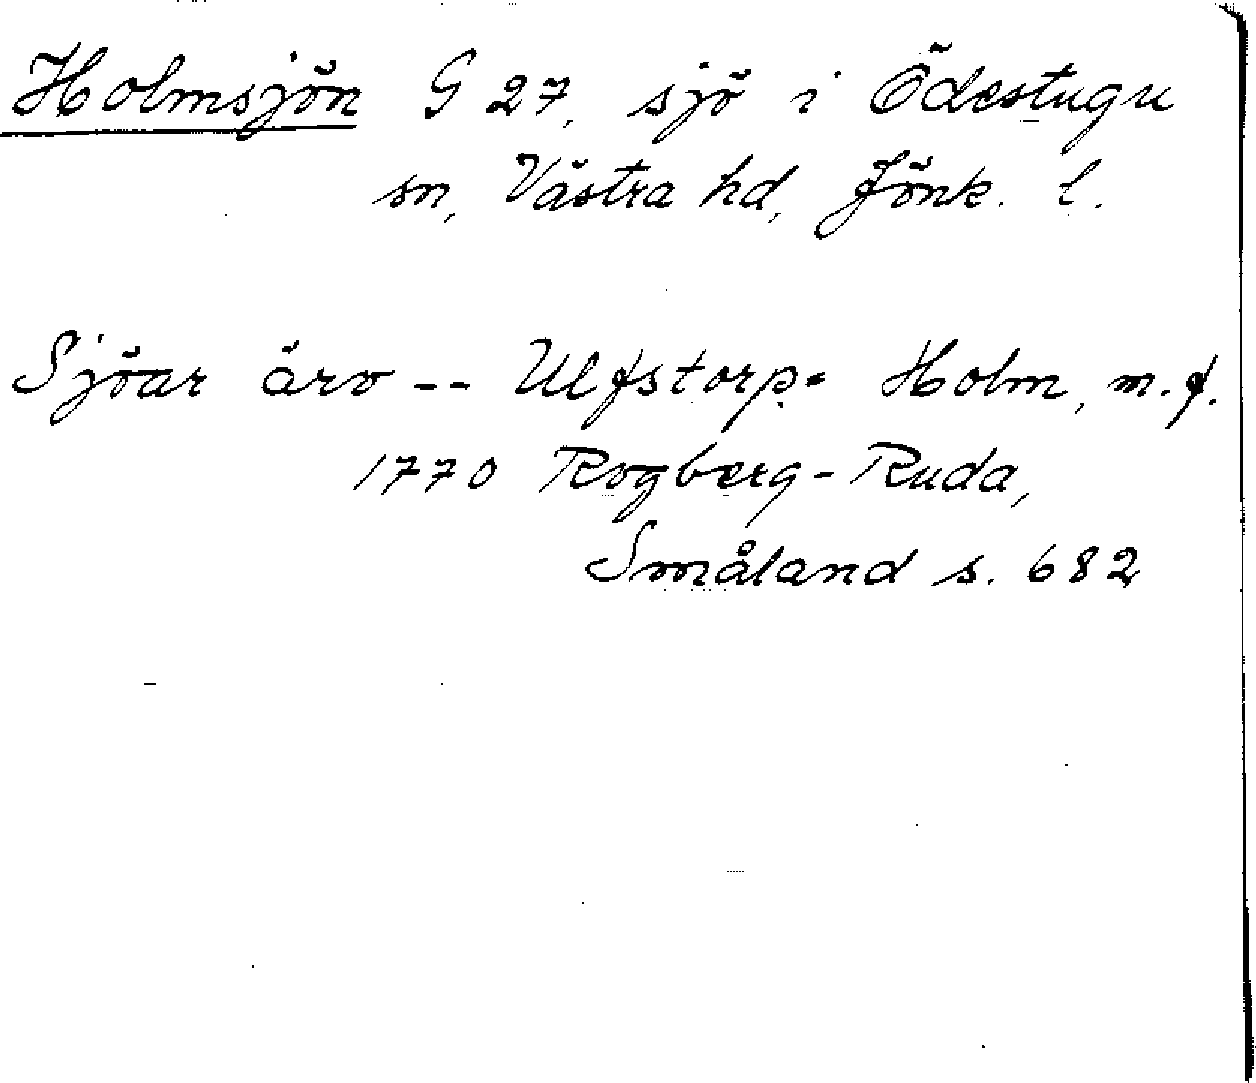 Holmsjön G 27, sjö i Ödestugu
sn, Västra hd, Jönk. l.
Sjöar äro -- Ulfstorp- Holm, m.f.
1770 Rogberg-Ruda,
Småland s. 682